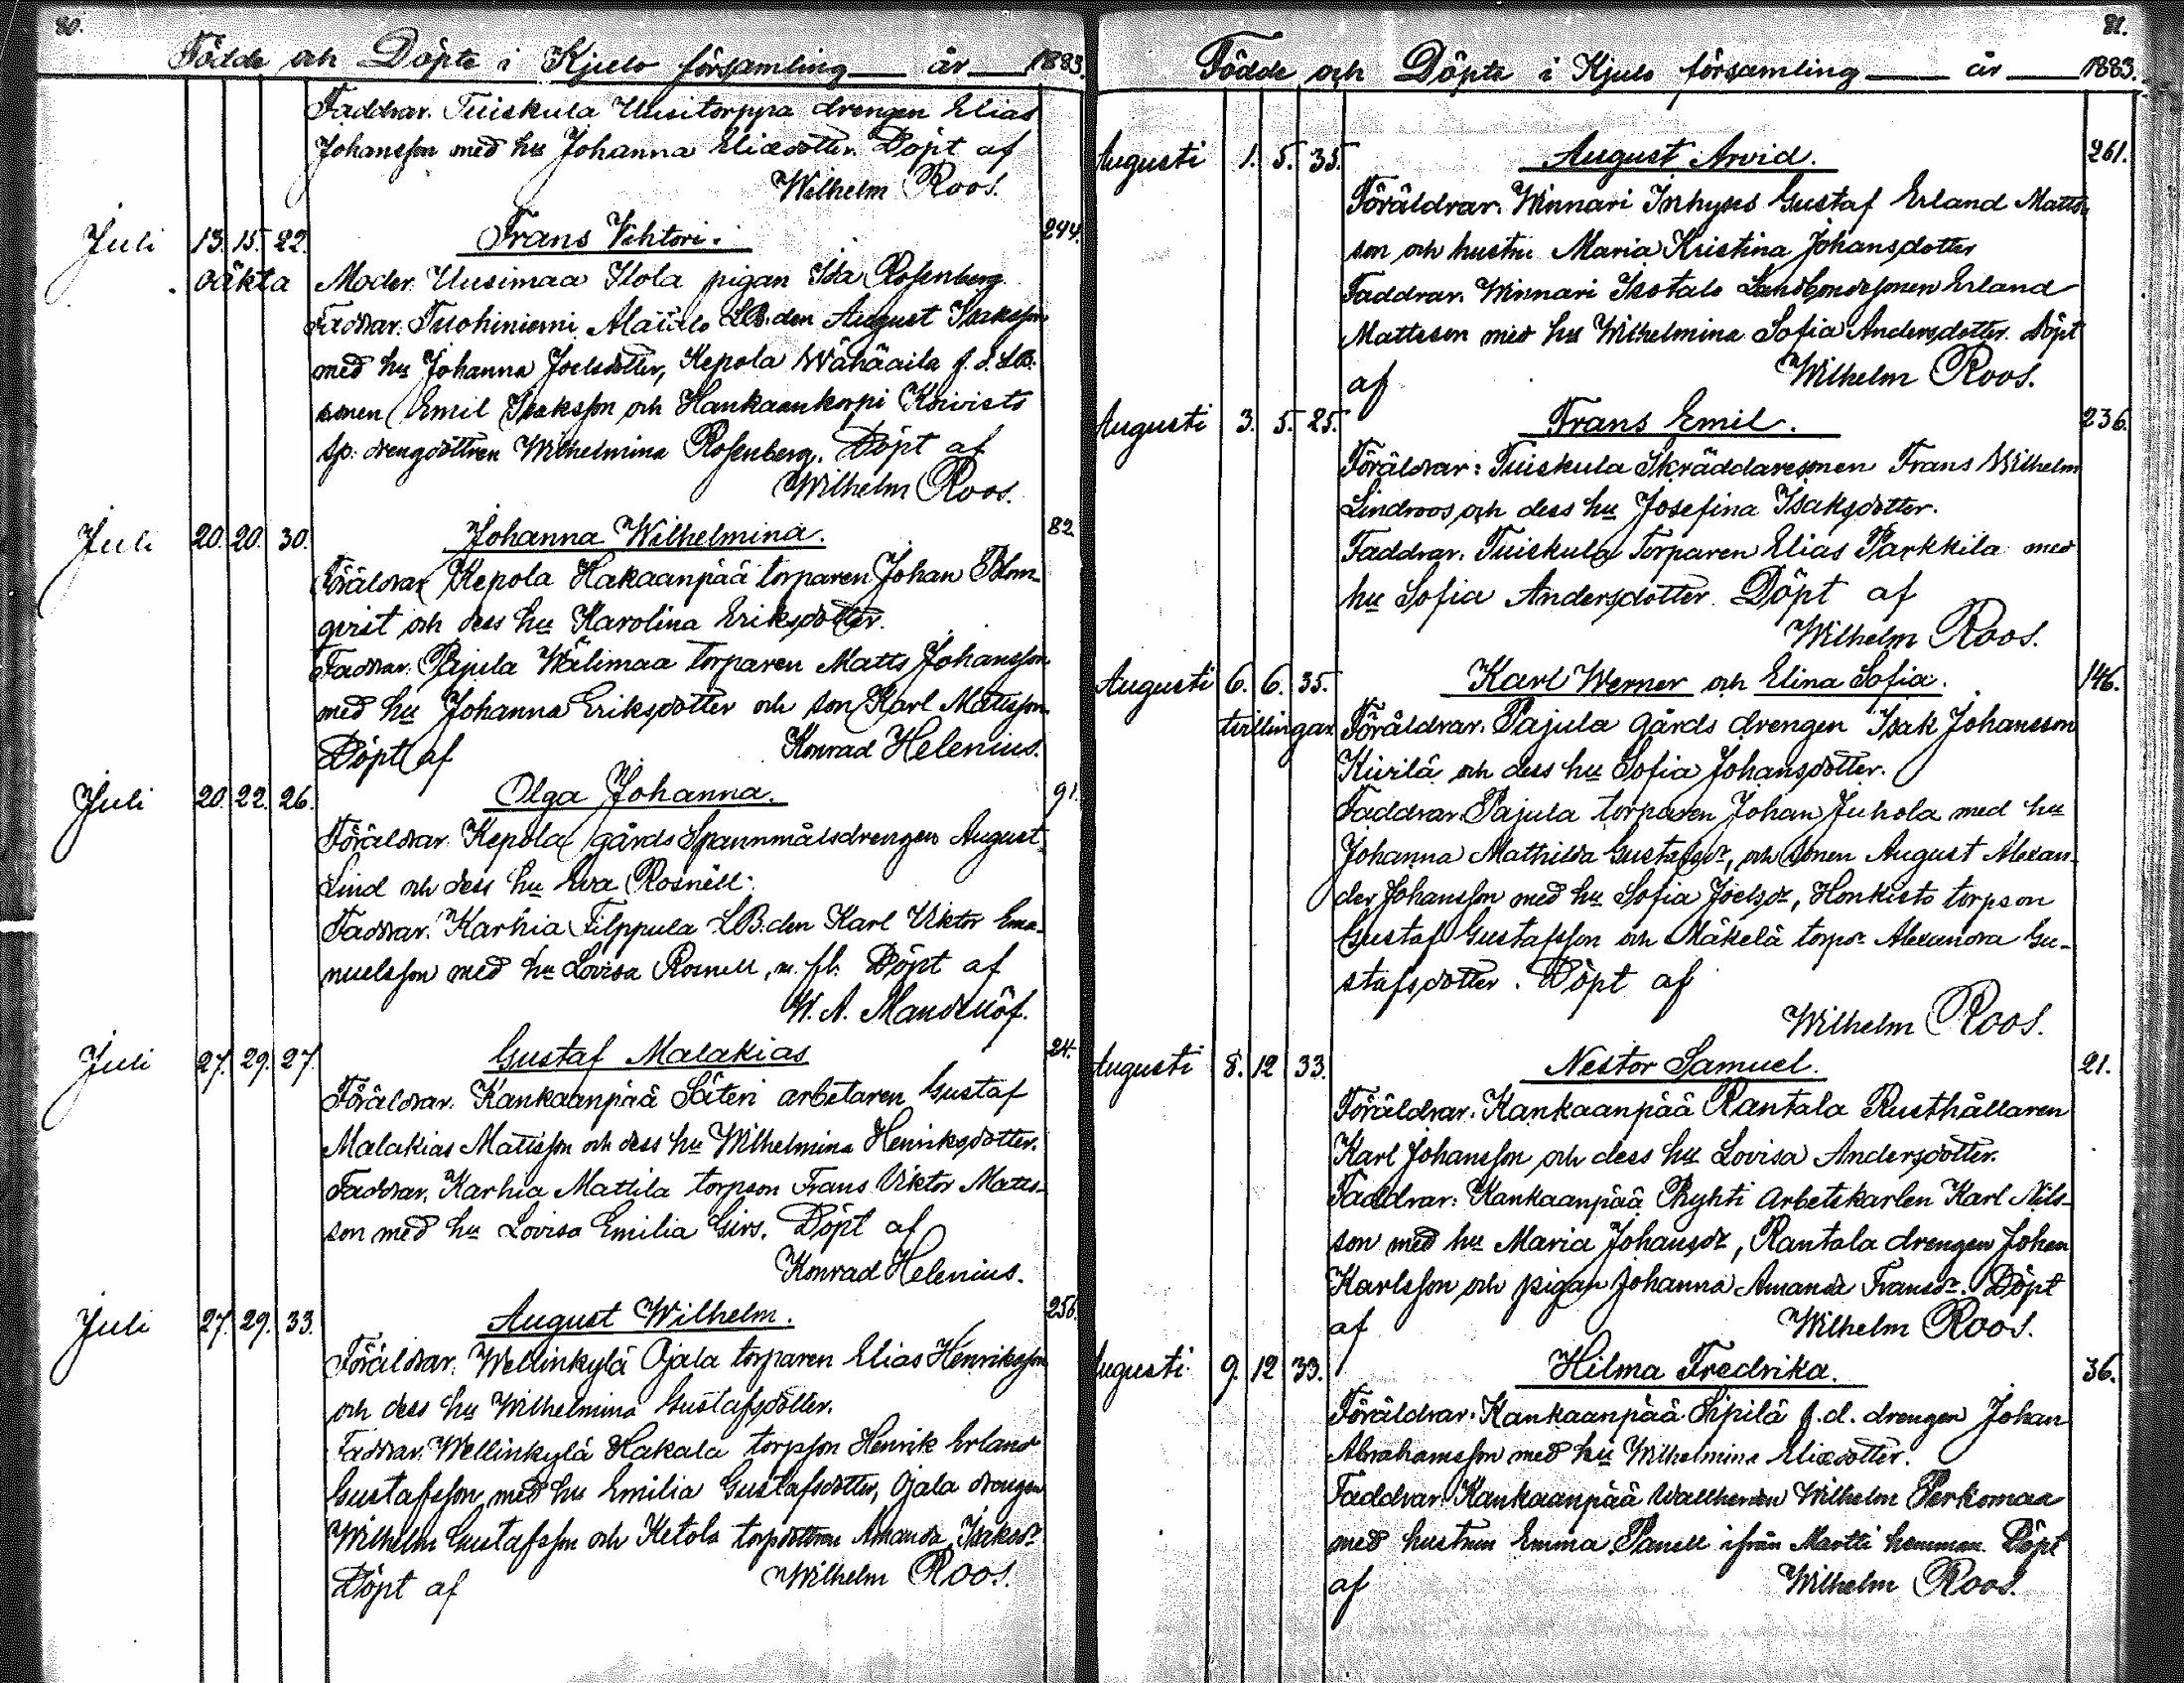 80.
Födde och Döpte i Kjulo församling år 1883.
Faddrar. Tuiskula Uusitorppa drengen Elias
Johansson med hu Johanna Eliædotter. Döpt af
Wilhelm Roos.
Juli 13. 15. 22. Frans Vihtori. 244.
oäkta Moder. Uusimaa Ilola pigan Ida Rosenberg
Faddrar. Tuohiniemi Alatalo LB.den August Isaksson
med hu Johanna Joelsdotter, Kepola Wähääila f. d. LB.
sonen Emil Isaksson och Hankaankorpi Koivisto
sp. drengdottren Wilhelmina Rosenberg. Döpt af
Wilhelm Roos.
Juli 20. 20. 30. Johanna Wilhelmina. 82.
Föräldrar Kepola Hakaanpää torparen Johan Blom-
qvist och dess hu Karolina Eriksdotter.
Faddrar. Pajula Wälimaa torparen Matts Johansson
med hu Johanna Eriksdotter och son Karl Mattsson.
Döpt af Konrad Helenius.
Juli 20. 22. 26. Olga Johanna. 91.
Föräldrar. Kepola gårds Spannmålsdrengen August
Lind och dess hu Eva Rosnell.
Faddrar. Karhia Filppula LB.den Karl Viktor Ema-
nuelsson med hu Lovisa Rosnell, m. fl. Döpt af
W. A. Mandellöf.
Juli 27. 29. 27. Gustaf Malakias 24.
Föräldrar. Kankaanpää Säteri arbetaren Gustaf
Malakias Mattsson och dess hu Wilhelmina Henriksdotter.
Faddrar. Karhia Mattila torpson Frans Viktor Matts-
son med hu Lovisa Emilia Girs. Döpt af
Konrad Helenius.
Juli 27. 29. 33. August Wilhelm. 256.
Föräldrar. Wellinkylä Ojala torparen Elias Henriksson
och dess hu Wilhelmina Gustafsdotter.
Faddrar. Wellinkylä Hakala torpson Henrik Erland
Gustafsson med hu Emilia Gustafsdotter, Ojala drengen
Wilhelm Gustafsson och Ketola torpdottren Amanda Isaksdr
Döpt af Wilhelm Roos.
81.
Födde och Döpte i Kjulo församling år 1883.
Augusti 1. 5. 35. August Arvid. 261.
Föräldrar. Winnari Inhyses Gustaf Erland Matts-
son och hustru Maria Kristina Johansdotter
Faddrar. Winnari Isotalo Landbondesonen Erland
Mattsson med hu Wilhelmina Sofia Andersdotter. Döpt
af Wilhelm Roos.
Augusti 3. 5. 25. Frans Emil. 236.
Föräldrar: Tuiskula Skräddaresonen Frans Wilhelm
Lindroos och dess hu Josefina Isaksdotter.
Faddrar. Tuiskula Torparen Elias Parkkila med
hu Sofia Andersdotter. Döpt af
Wilhelm Roos.
Augusti 6. 6. 35. Karl Werner och Elina Sofia. 146.
tvillingar. Föräldrar. Pajula gårds drengen Isak Johansson
Kivilä och dess hu Sofia Johansdotter.
Faddrar. Pajula torparen Johan Juhola med hu
Johanna Mathilda Gustafsdr, och sonen August Alexan-
der Johansson med hu Sofia Joelsdr, Honkisto torpson
Gustaf Gustafsson och Mäkelä torpdr Alexandra Gu-
stafsdotter. Döpt af
Wilhelm Roos.
Augusti 8. 12 33. Nestor Samuel. 21.
Föräldrar. Kankaanpää Rantala Rusthållaren
Karl Johansson och dess hu Lovisa Andersdotter.
Faddrar: Kankaanpää Ryhti Arbetskarlen Karl Nils-
son med hu Maria Johansdr, Rantala drengen Johan
Karlsson och pigan Johanna Amanda Fransdr. Döpt
af Wilhelm Roos.
Augusti 9. 12 33. Hilma Fredrika. 36.
Föräldrar. Kankaanpää Sipilä f. d. drengen Johan
Abrahamsson med hu Wilhelmina Eliædotter.
Faddrar. Kankaanpää Wallherden Wilhelm Perkomaa
med hustrun Emma Panell ifrån Martti hemman. Döpt
af Wilhelm Roos.